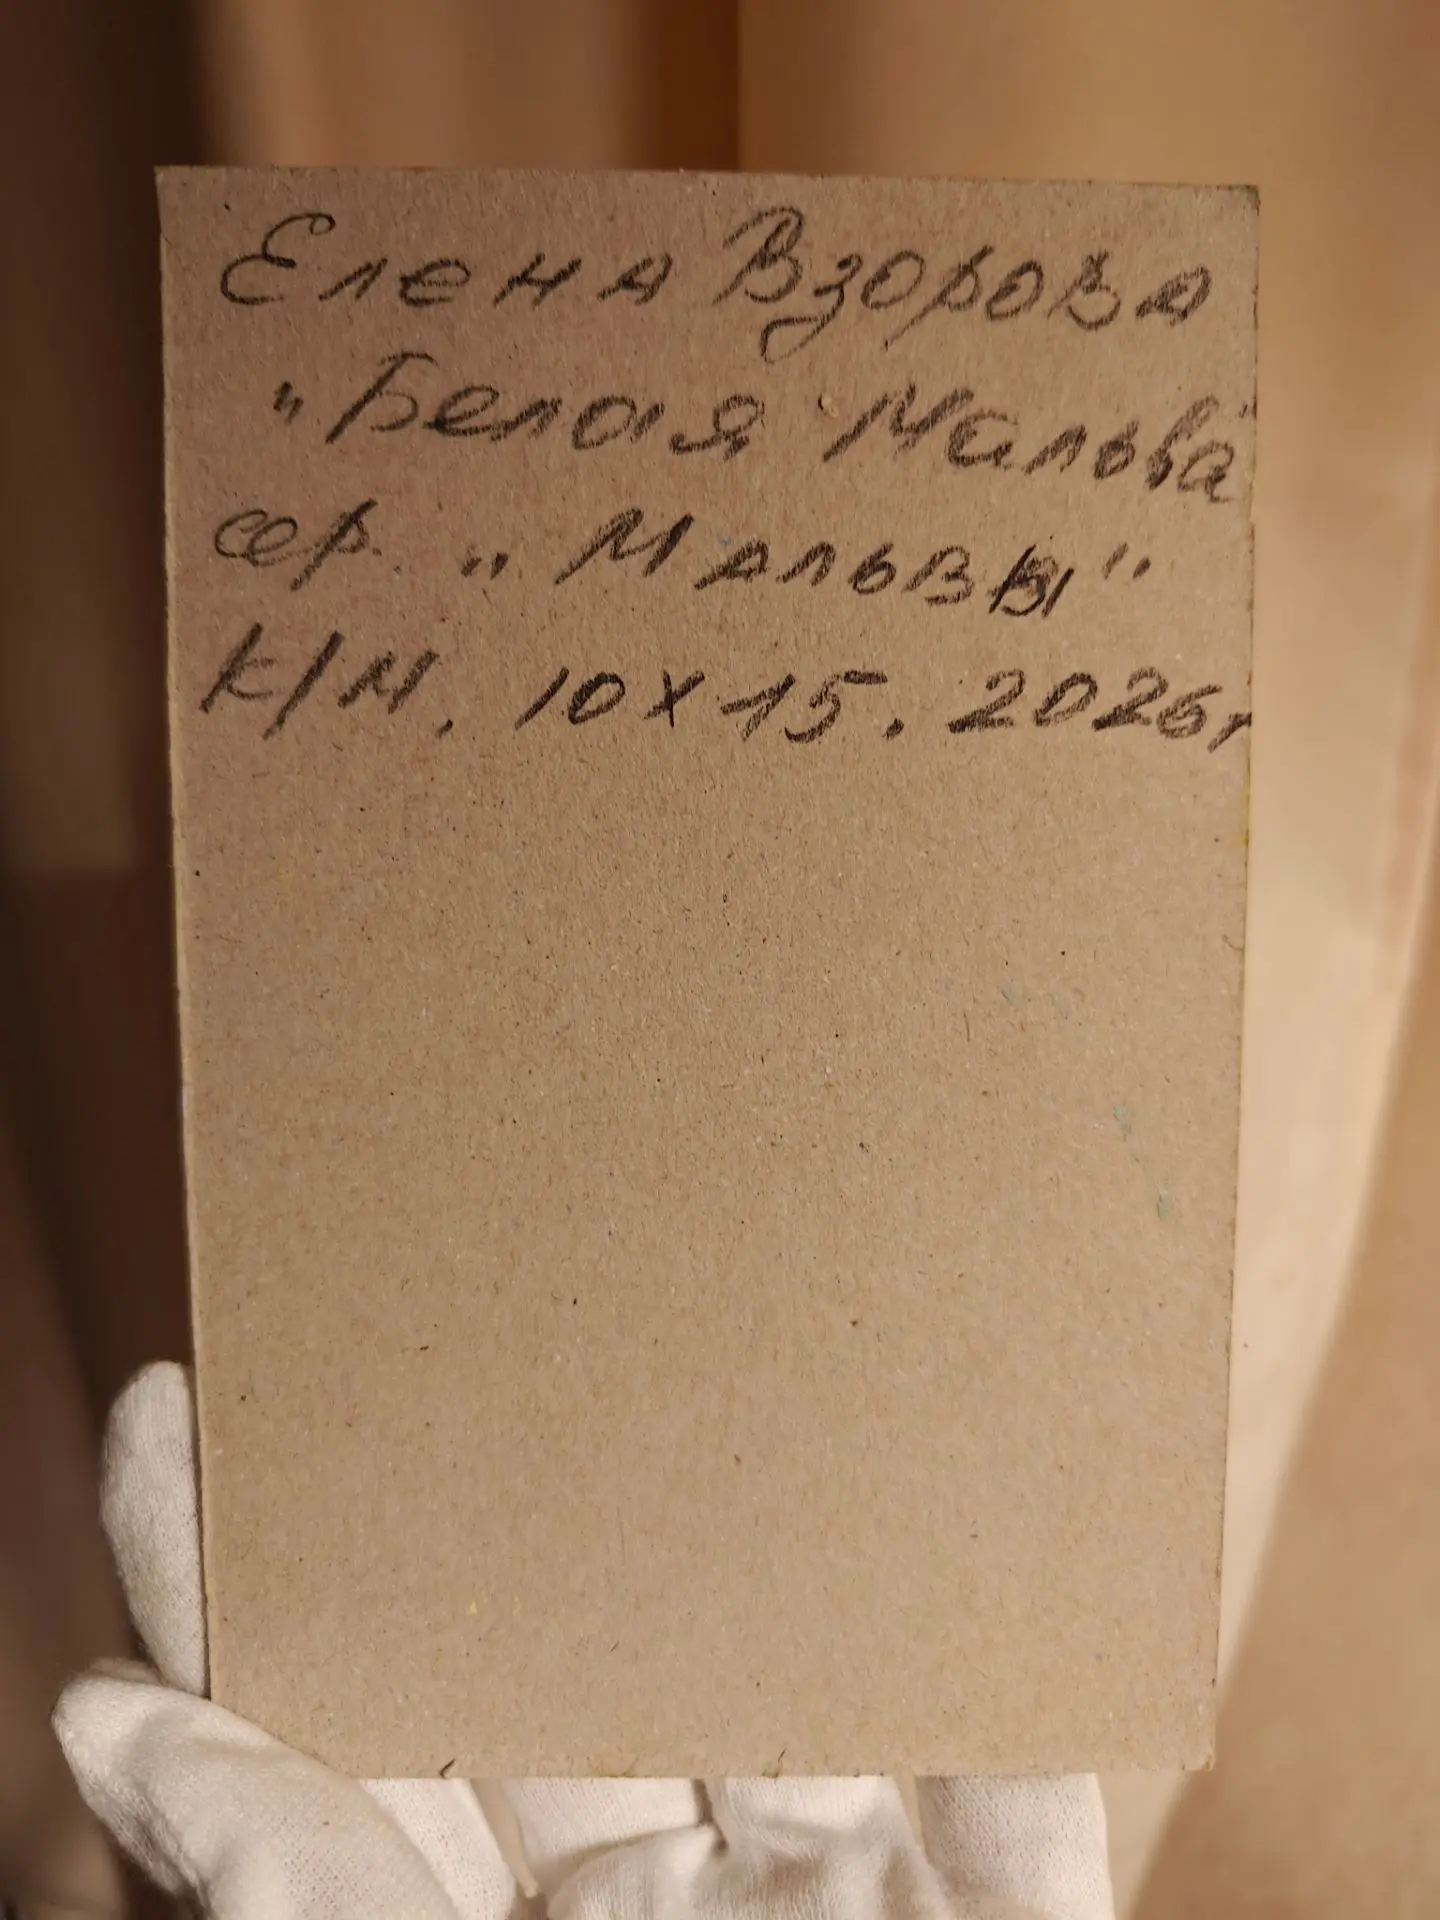 Елена Взорова
"Белая Мальва"
сер. "Мальвы"
к/м. 10х15. 2026г